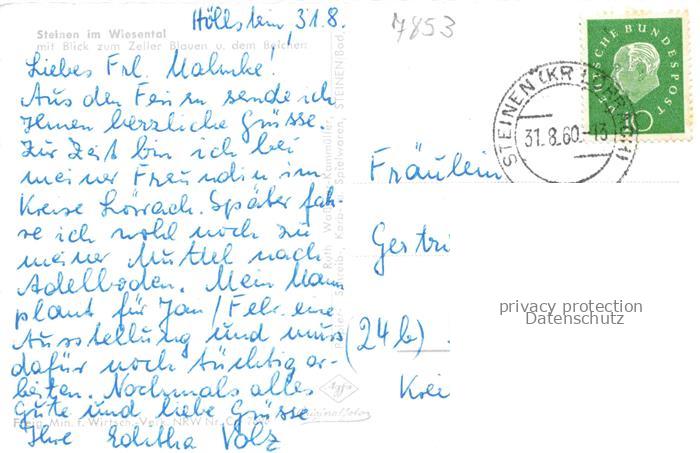 Höllstein, 31.8.
7853
Steinen im Wiesental
mit Blick zum Zeller Blauen u. dem Belchen
Liebes Frl. Mahnke!
Aus den Ferien sende ich
Ihnen herzliche Grüsse.
Zur Zeit bin ich bei
meiner Freundin im
Kreise Lörrach. Später fah-
re ich wohl noch zu
meiner Mutter nach
Adelboden. Mein Mann
plant für Jan/Febr. eine
Ausstellung und muss
dafür noch tüchtig ar-
beiten. Nochmals alles
Gute und liebe Grüsse
Ihre Editha Volz
Freig. Min. f. Wirtsch.-Verk. NRW Nr.
Agfa
STEINEN (KR LÖRRACH)
31.8.60-13
DEUTSCHE BUNDESPOST
10
Fräulein
Gertr
(24b)
Krei
privacy protection
Datenschutz